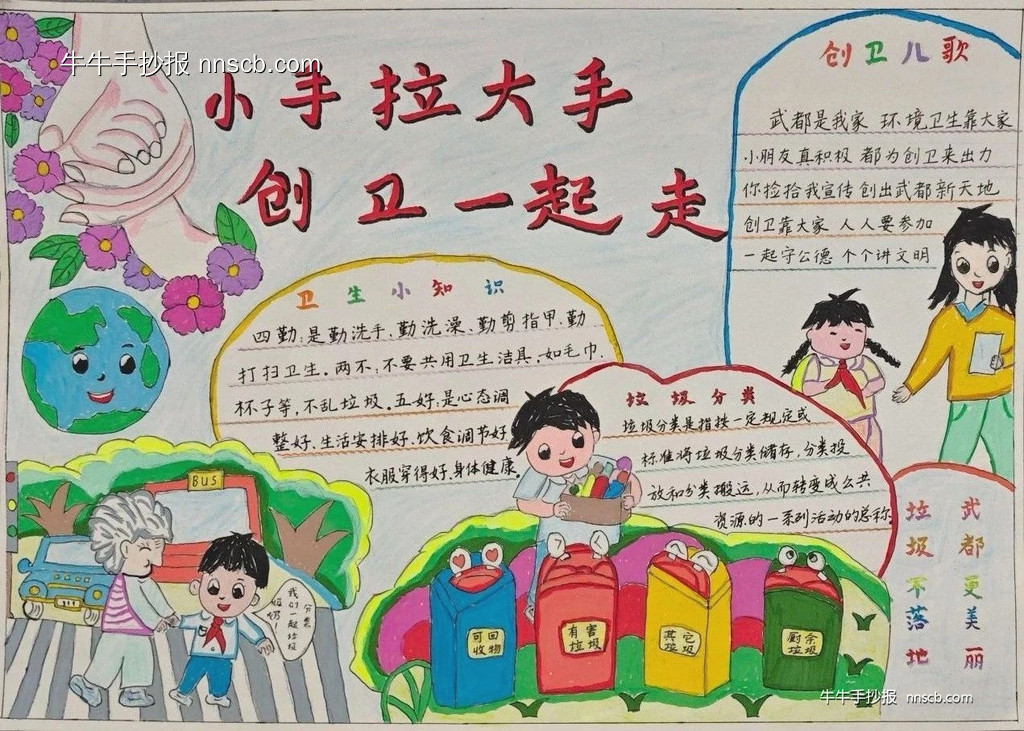 牛牛手抄报 nnscb.com
小手拉大手
创卫一起走
创卫儿歌
武都是我家 环境卫生靠大家
小朋友真积极 都为创卫来出力
你捡拾我宣传 创出武都新天地
创卫靠大家 人人要参加
一起守公德 个个讲文明
卫生小知识
四勤:是勤洗手、勤洗澡、勤剪指甲、勤
打扫卫生。两不:不要共用卫生洁具、如毛巾、
杯子等,不乱垃圾。五好:是心态调
整好、生活安排好、饮食调节好、
衣服穿得好、身体健康。
垃圾分类
垃圾分类是指按一定规定或
标准将垃圾分类储存,分类投
放和分类搬运,从而转变成公共
资源的一系列活动的总称。
BUS
奶奶!
我们一起垃圾
分类
可回
收物
有害
垃圾
其它
垃圾
厨余
垃圾
武都更美丽
垃圾不落地
牛牛手抄报 nnscb.com